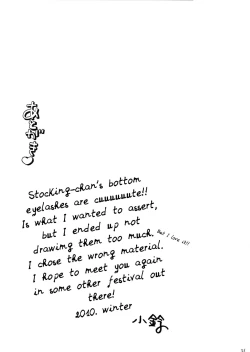 あとがき
Stocking-chan's bottom
eyelashes are cuuuuuute!!
Is what I wanted to assert,
but I ended up not
drawimg them too much. But I love it!!
I chose the wrong material.
I hope to meet you again
in some other festival out
there!
2010. winter
小鈴